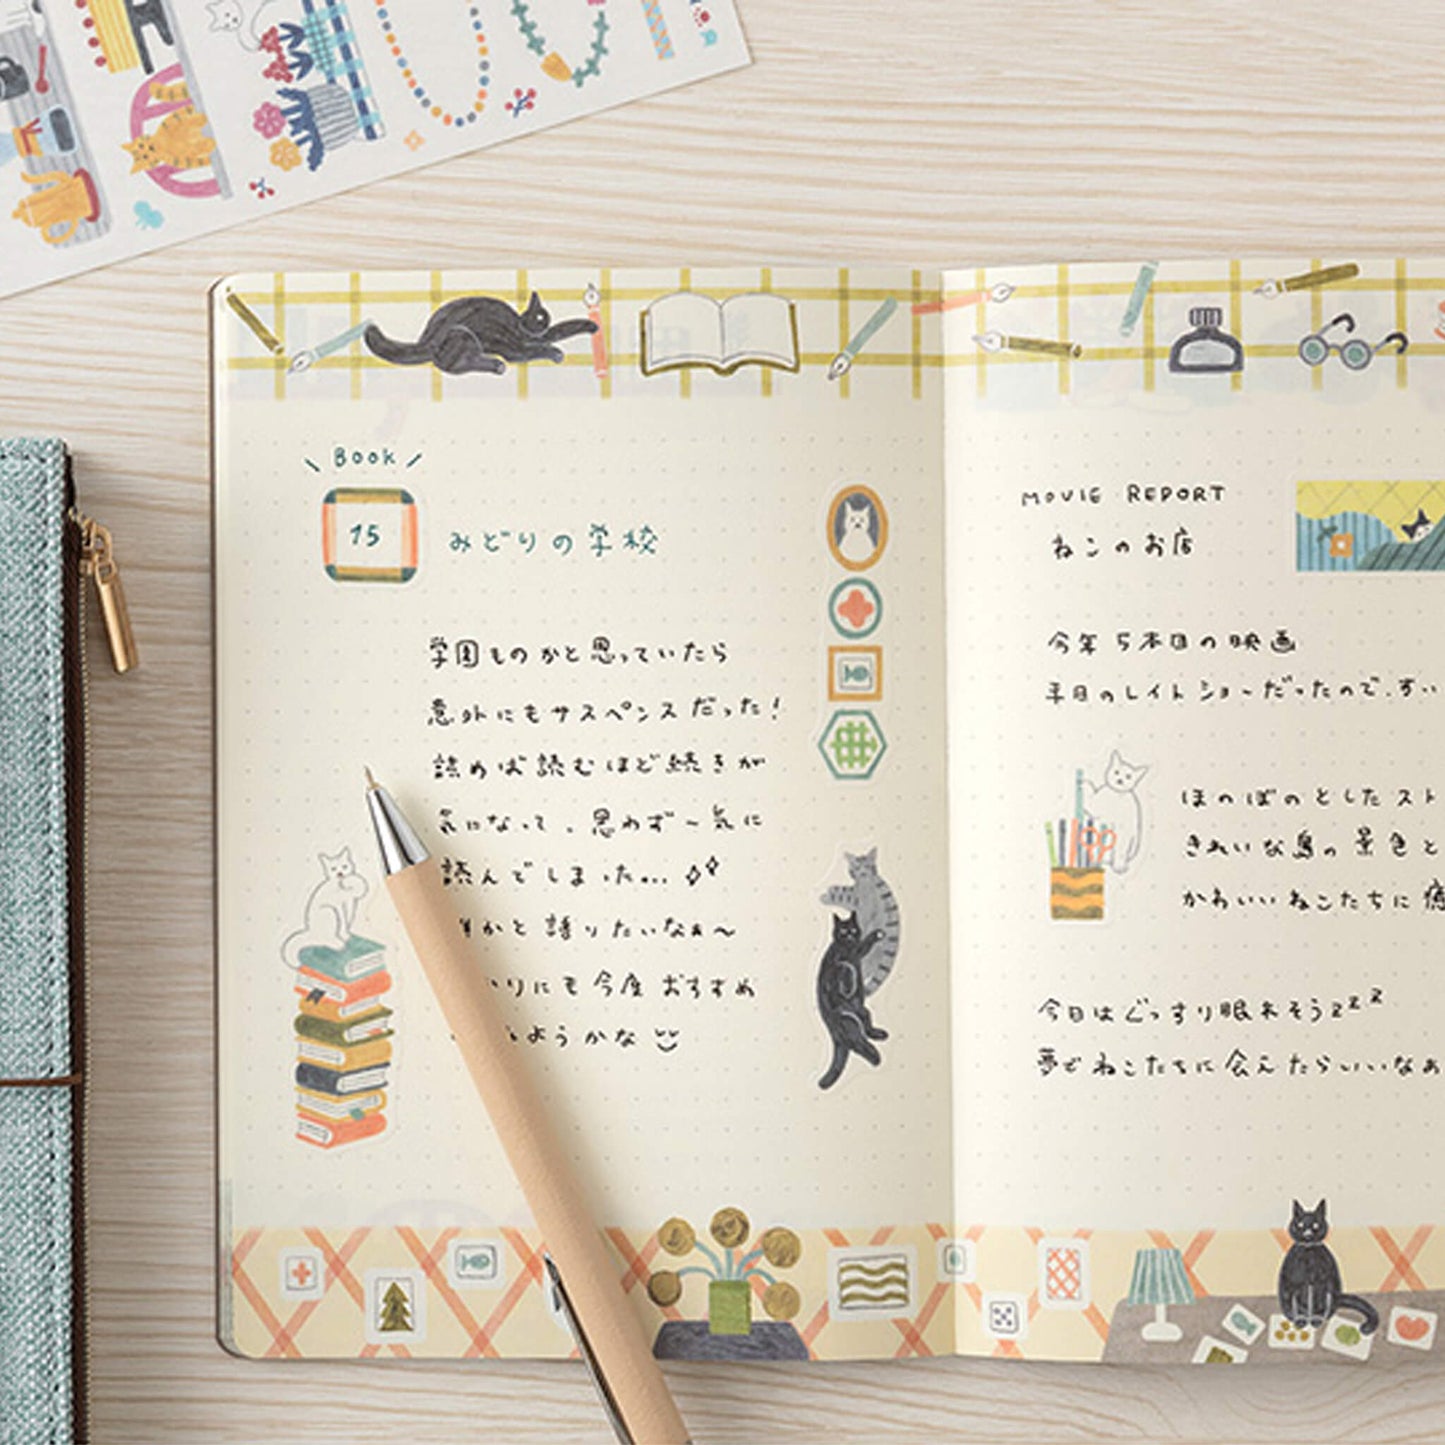 Book
15
みどりの学校
学園ものかと思っていたら
意外にもサスペンスだった!
読めば読むほど続きが
気になって、思わず一気に
読んでしまった...
かと語りたいなぁ〜
りにも今度おすすめ
ようかな
MOVIE REPORT
ねこのお店
今年5本目の映画
平日のレイトショーだったので、すい
ほのぼのとしたスト
きれいな島の景色と
かわいいねこたちに癒
今日はぐっすり眠れそうzzz
夢でねこたちに会えたらいいなぁ